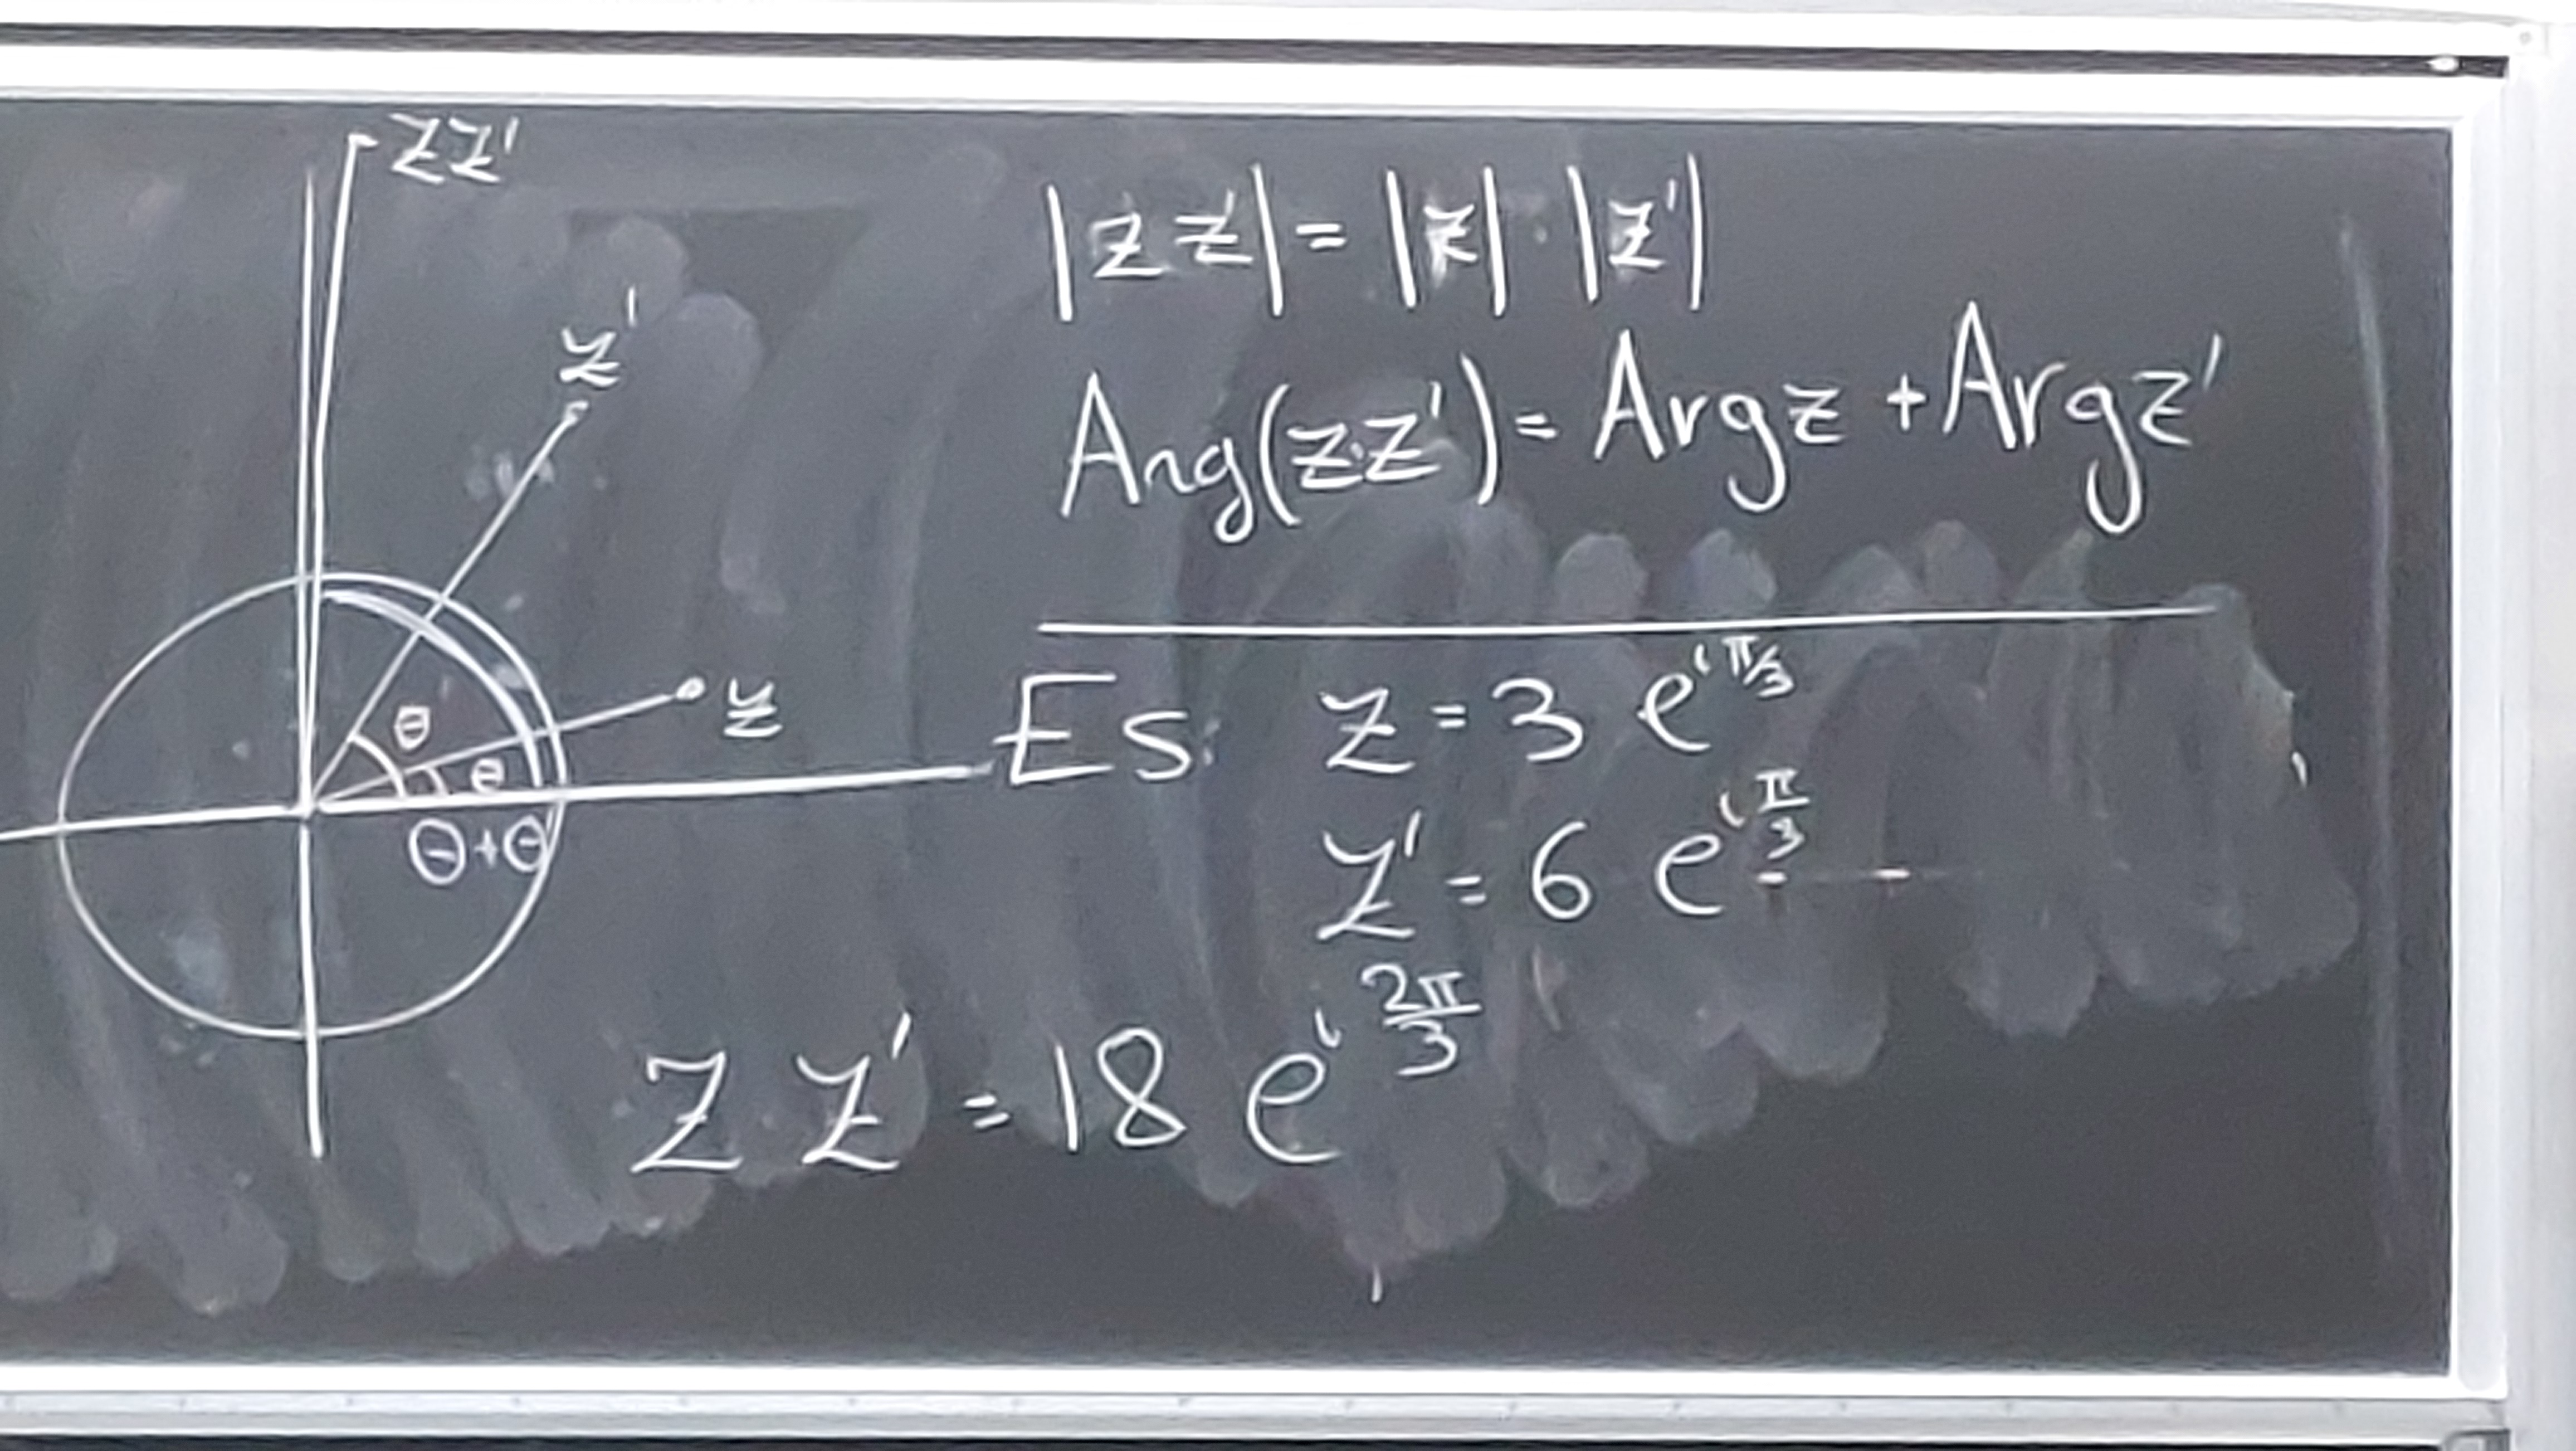 zz'
z'
z
θ
θ
θ+θ'
|z z'| = |z| · |z'|
Arg(z·z') = Arg z + Arg z'
Es: z = 3 e^{i π/3}
z' = 6 e^{i π/3}
z z' = 18 e^{i 2π/3}